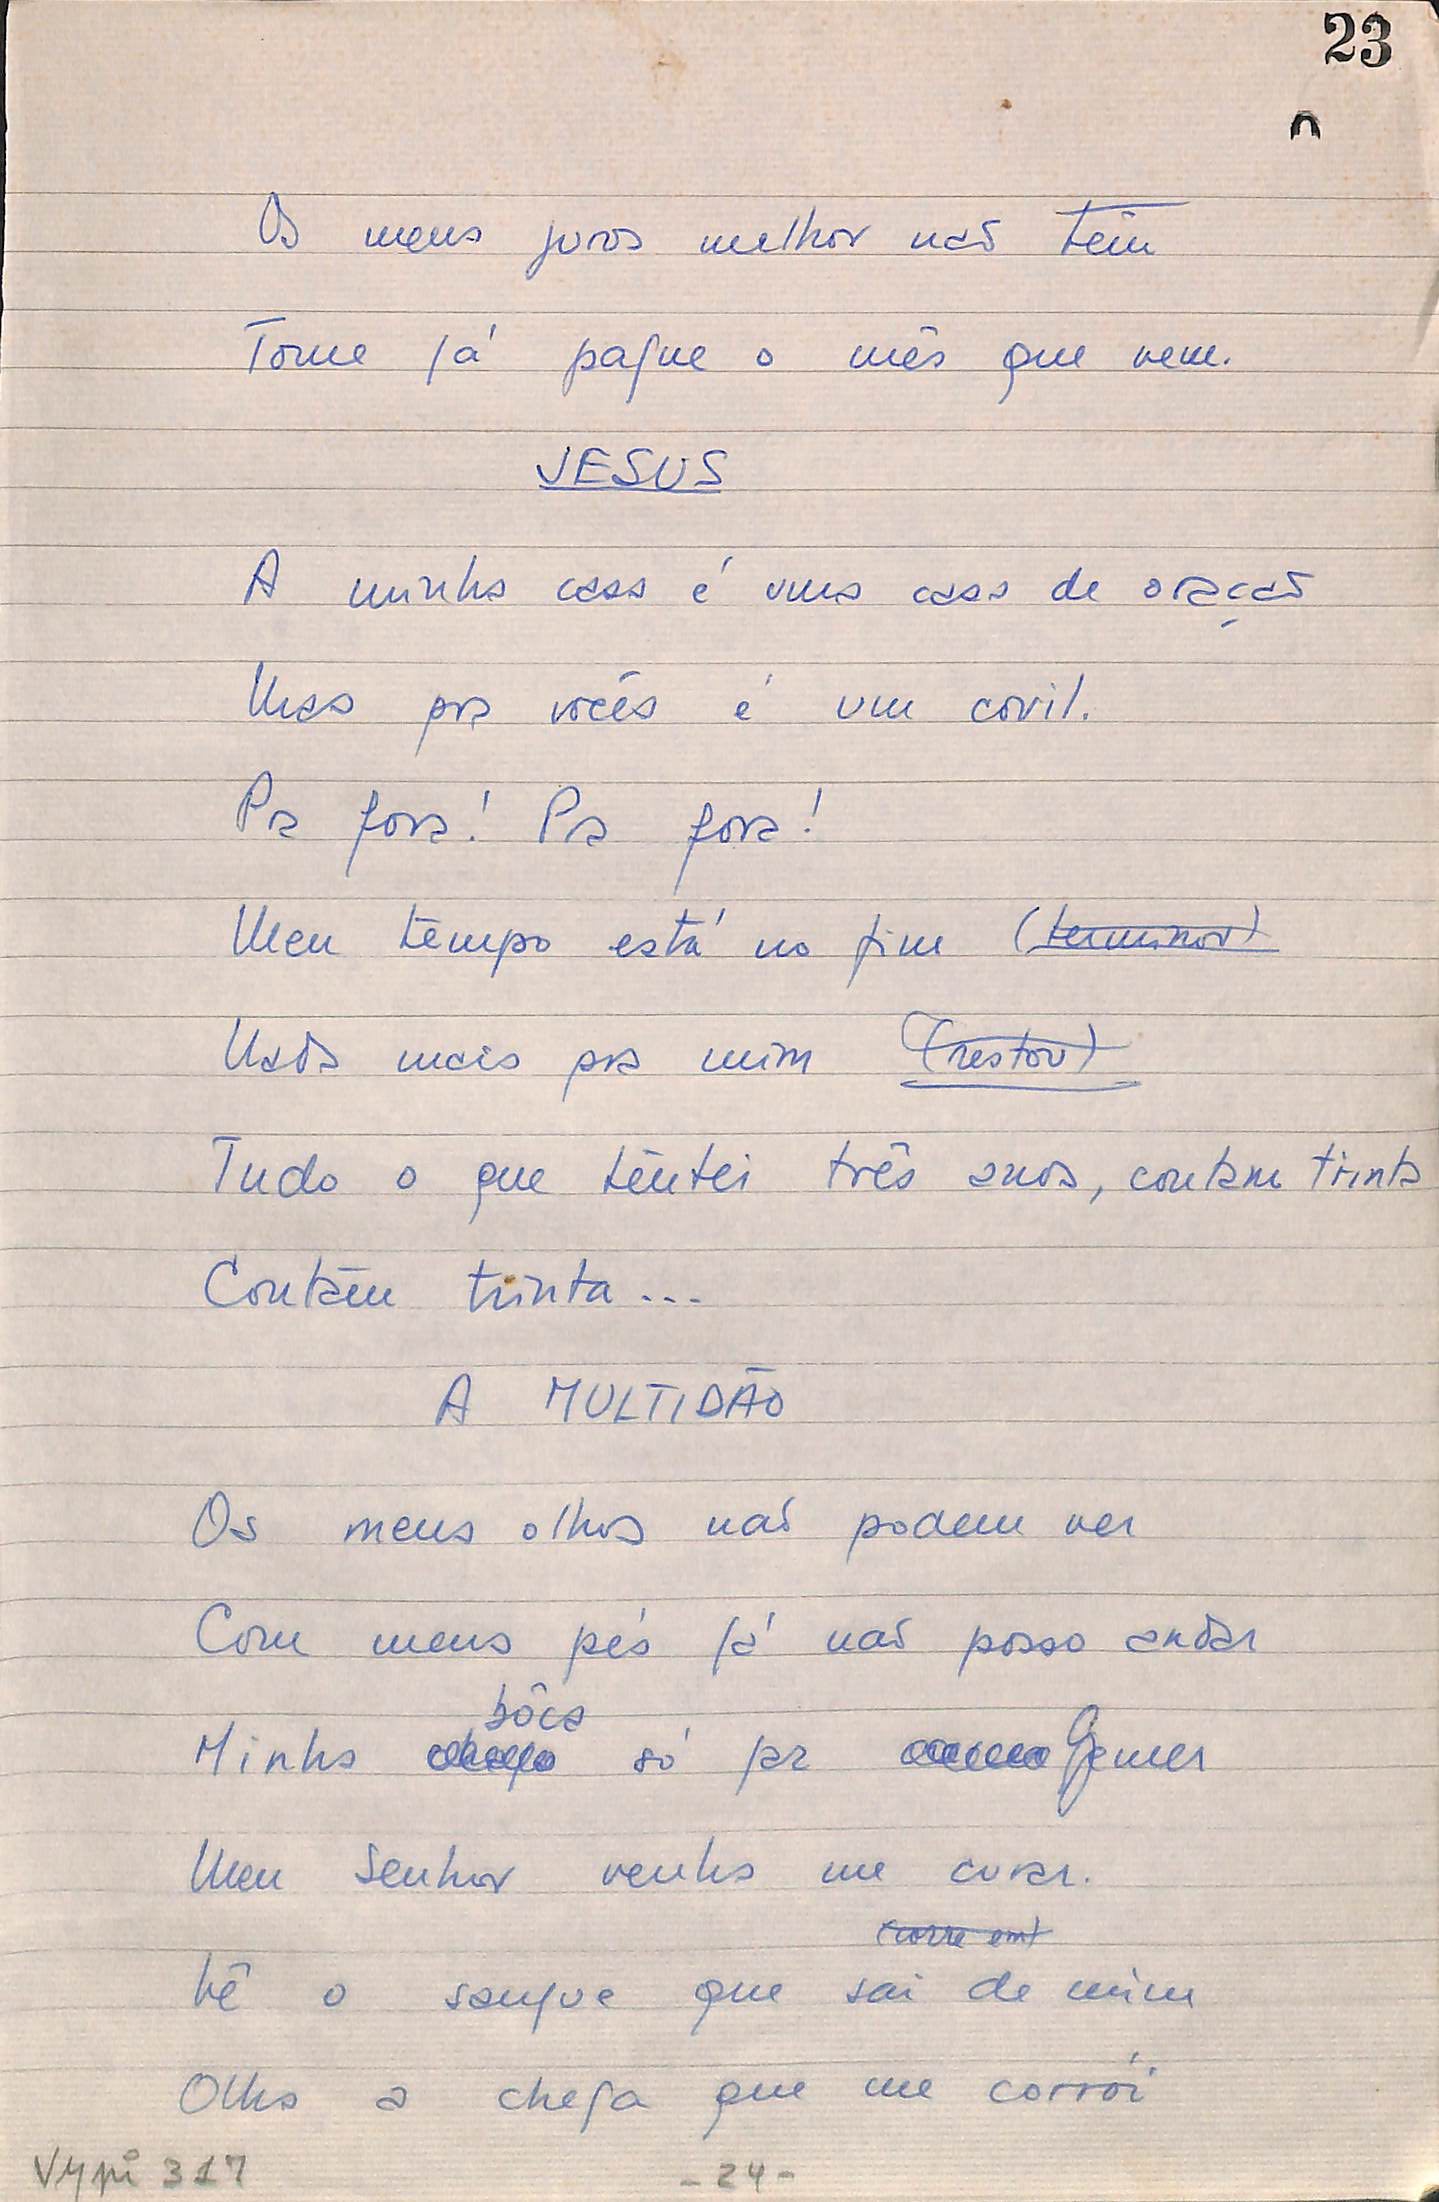 23
Os meus juros melhor não têm
Tome já pague o mês que vem.
JESUS
A minha casa é uma casa de oração
Mas pra vocês é um covil.
Pra fora! Pra fora!
Meu tempo está no fim (terminou)
Nada mais pra mim (restou)
Tudo o que tentei três anos, contam trinta
Contam trinta...
A MULTIDÃO
Os meus olhos não podem ver
Com meus pés já não posso andar
bôca
Minha só pra Gemer
Meu Senhor venha me curar.
(corre em)
Vê o sangue que sai de mim
Olha a chaga que me corrói
Vypi 317
-24-